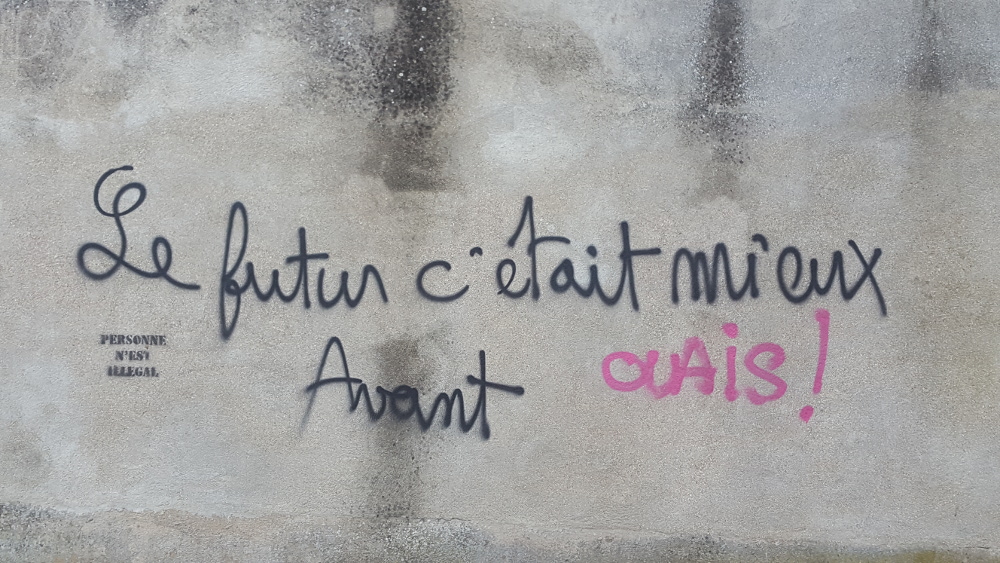 Le futur c'était mieux
Avant
ouAis!
PERSONNE
N'EST
ILLEGAL